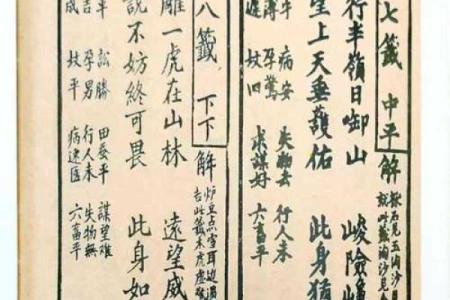 七籤 中平 解
行半嶺日啣山 峻險崎
望上天垂護佑 此身猶
病安 失物去 行人未
孕驚 求謀好 六畜平
八籤 下下 解
雕一虎在山林 遠望威
說不妨終可畏 此身如
平 訟勝 田蚕平 謀望难
吉 孕男 行人未 失物無
成 平 病速医 六畜平